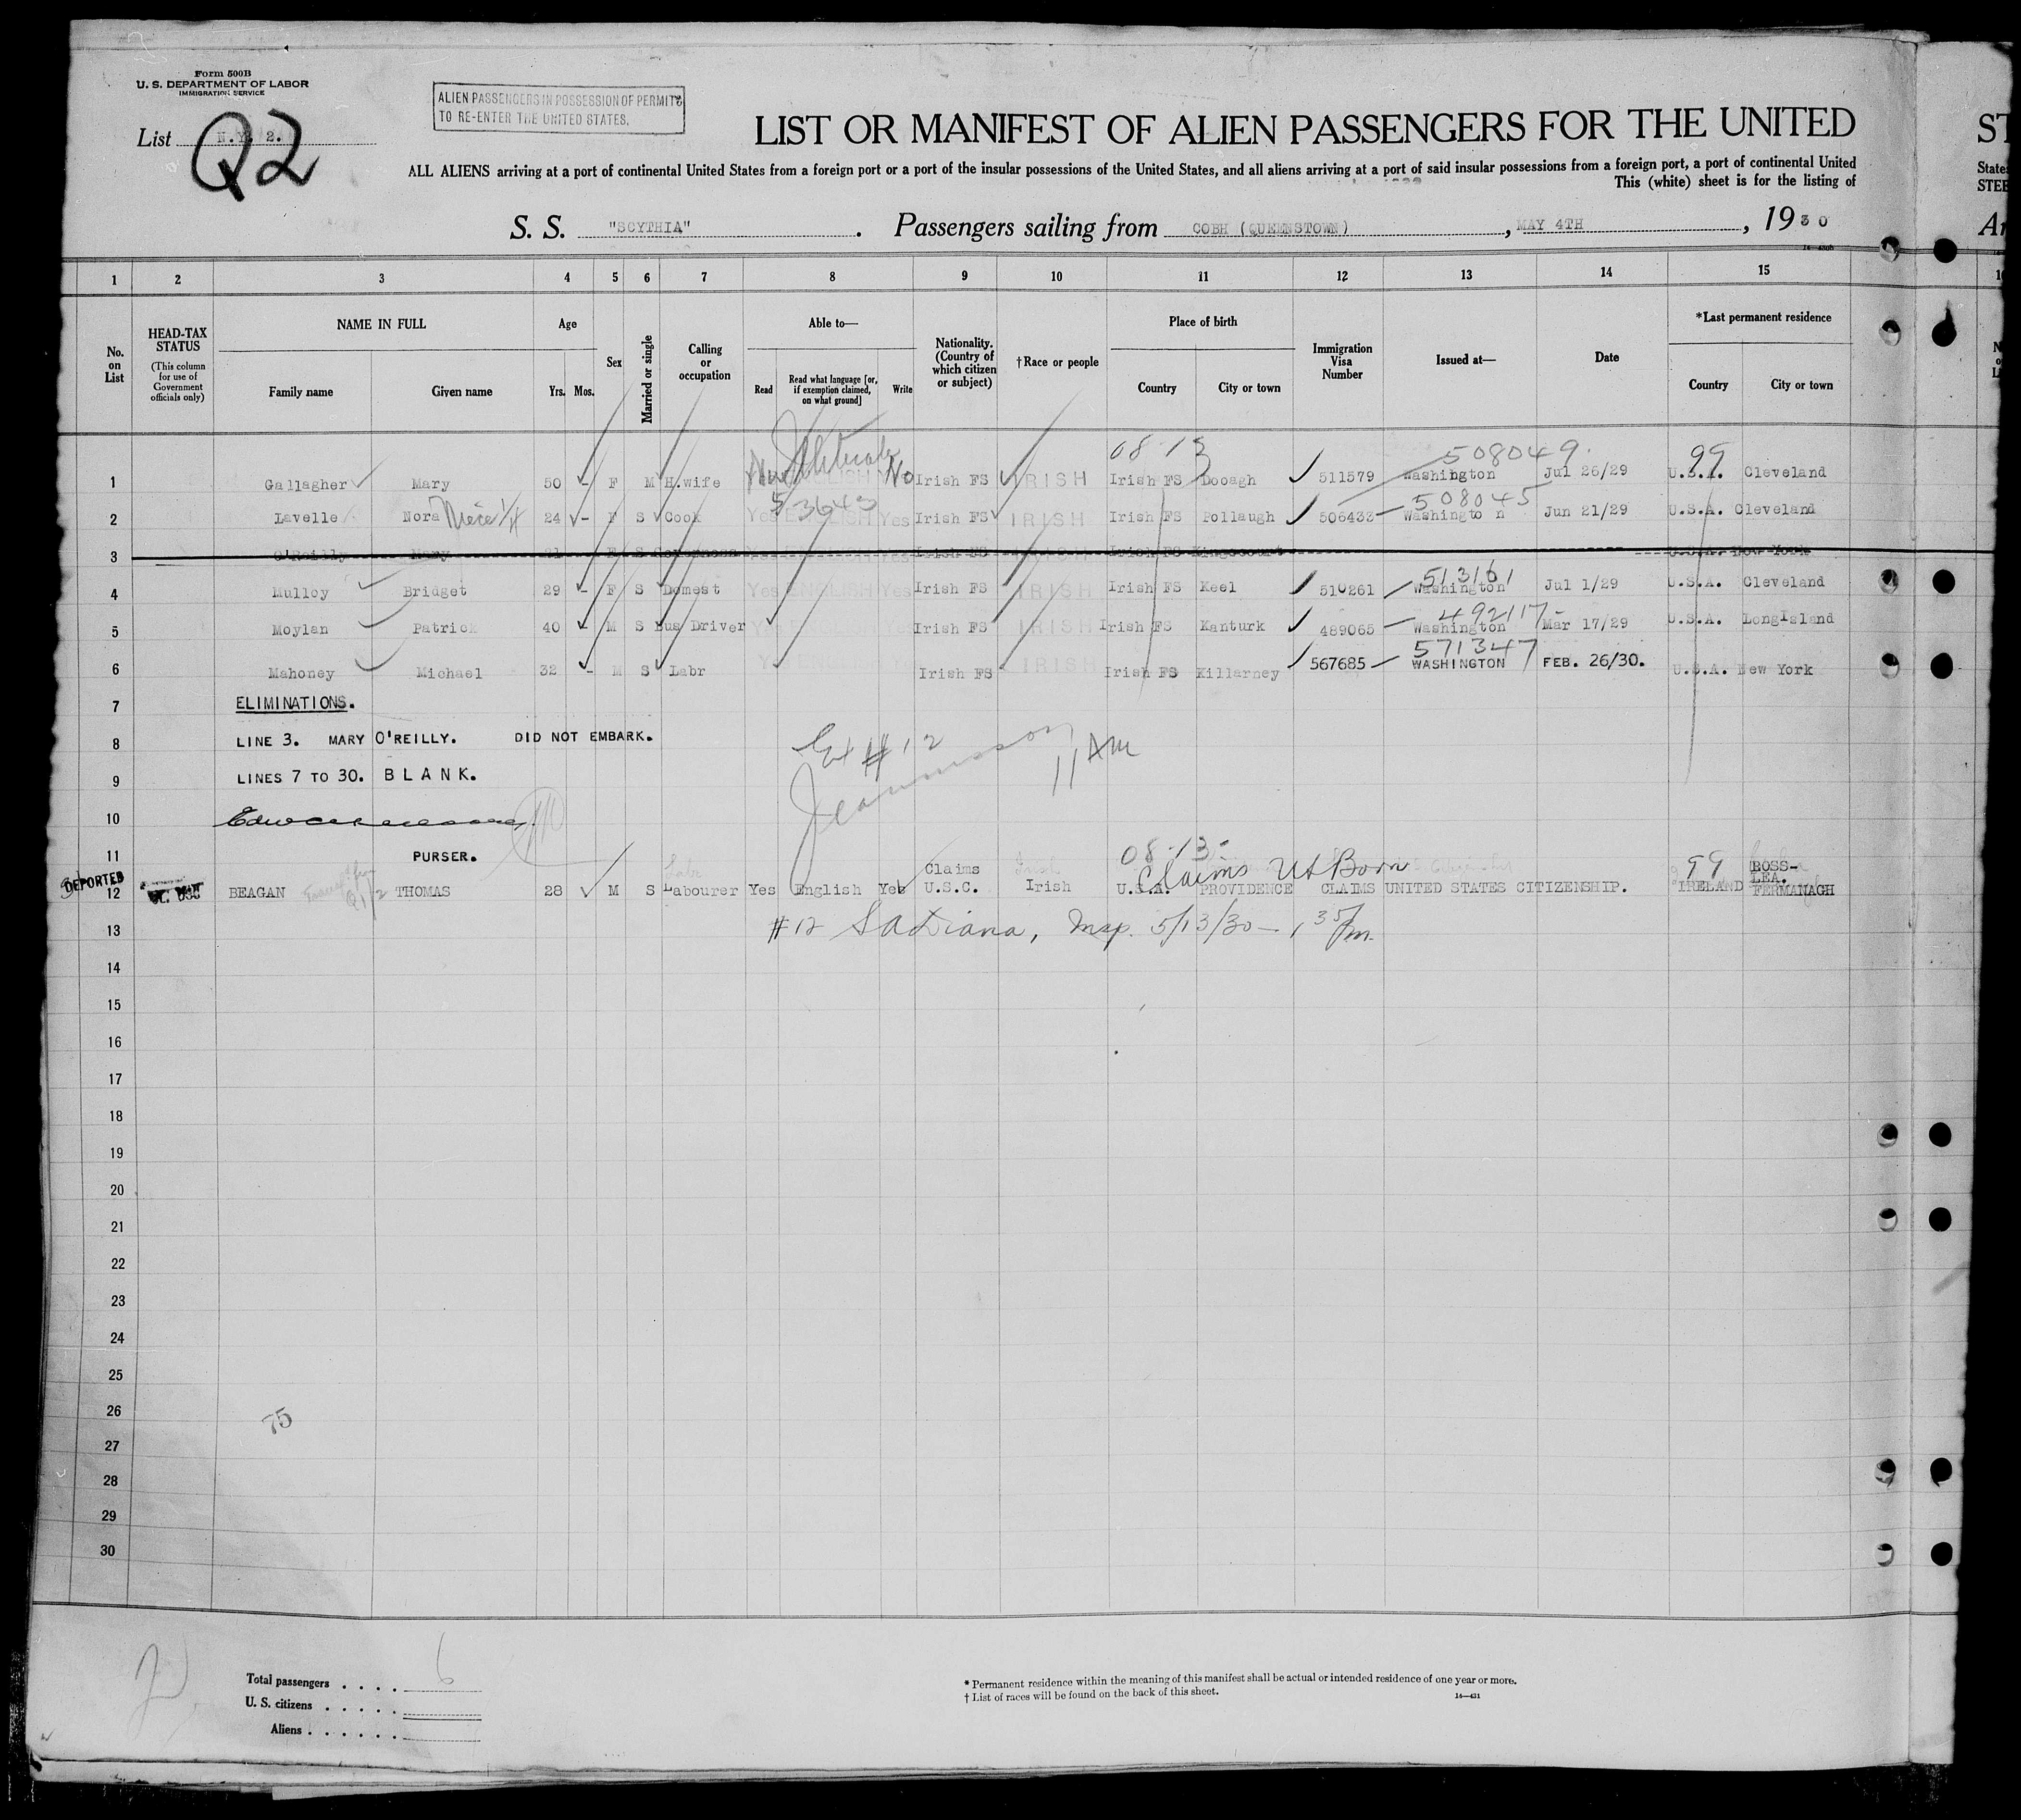 Form 500B
U. S. DEPARTMENT OF LABOR
IMMIGRATION SERVICE
List N.Y. 2.
Q2
ALIEN PASSENGERS IN POSSESSION OF PERMITS
TO RE-ENTER THE UNITED STATES.
LIST OR MANIFEST OF ALIEN PASSENGERS FOR THE UNITED
ST
ALL ALIENS arriving at a port of continental United States from a foreign port or a port of the insular possessions of the United States, and all aliens arriving at a port of said insular possessions from a foreign port, a port of continental United
States
This (white) sheet is for the listing of
STEE
S. S. "SCYTHIA" . Passengers sailing from COBH (QUEENSTOWN) , MAY 4TH , 1930
Ar
1 2 3 4 5 6 7 8 9 10 11 12 13 14 15
No. on List
HEAD-TAX STATUS (This column for use of Government officials only)
NAME IN FULL Family name Given name
Age Yrs. Mos.
Sex
Married or single
Calling or occupation
Able to— Read Read what language [or, if exemption claimed, on what ground] Write
Nationality. (Country of which citizen or subject)
†Race or people
Place of birth Country City or town
Immigration Visa Number
Issued at—
Date
*Last permanent residence Country City or town
08-13 508049 99
1 Gallagher Mary 50 - F M H.wife No Irish FS IRISH Irish FS Dooagh 511579 Washington Jul 26/29 U.S.A. Cleveland
53643 508045
2 Lavelle Nora Niece 1/4 24 - F S Cook Yes ENGLISH Yes Irish FS IRISH Irish FS Pollaugh 506433 Washington Jun 21/29 U.S.A. Cleveland
3 O'Reilly Mary 21 F S Governess Yes ENGLISH Yes Irish FS IRISH Irish FS Kingscourt U.S.A. New York
513161
4 Mulloy Bridget 29 - F S Domest Yes ENGLISH Yes Irish FS IRISH Irish FS Keel 510261 Washington Jul 1/29 U.S.A. Cleveland
492117
5 Moylan Patrick 40 - M S Bus Driver Irish FS IRISH Irish FS Kanturk 489065 Washington Mar 17/29 U.S.A. Long Island
571347
6 Mahoney Michael 32 - M S Labr Yes ENGLISH Yes Irish FS IRISH Irish FS Killarney 567685 WASHINGTON FEB. 26/30. U.S.A. New York
7 ELIMINATIONS.
8 LINE 3. MARY O'REILLY. DID NOT EMBARK.
Ex # 12
11 AM
9 LINES 7 TO 30. BLANK.
10
11 PURSER.
08-13- Claims US Born 99
DEPORTED
12 BEAGAN THOMAS 28 M S Labourer Yes English Yes Claims U.S.C. Irish U.S.A. PROVIDENCE CLAIMS UNITED STATES CITIZENSHIP. IRELAND ROSS-LEA. FERMANAGH
13 #12 Insp. 5/13/30 - 1 35 Pm.
14
15
16
17
18
19
20
21
22
23
24
25
26
75
27
28
29
30
Total passengers . . . . 6
U. S. citizens . . . . .
Aliens . . . . . .
* Permanent residence within the meaning of this manifest shall be actual or intended residence of one year or more.
† List of races will be found on the back of this sheet.
14—431